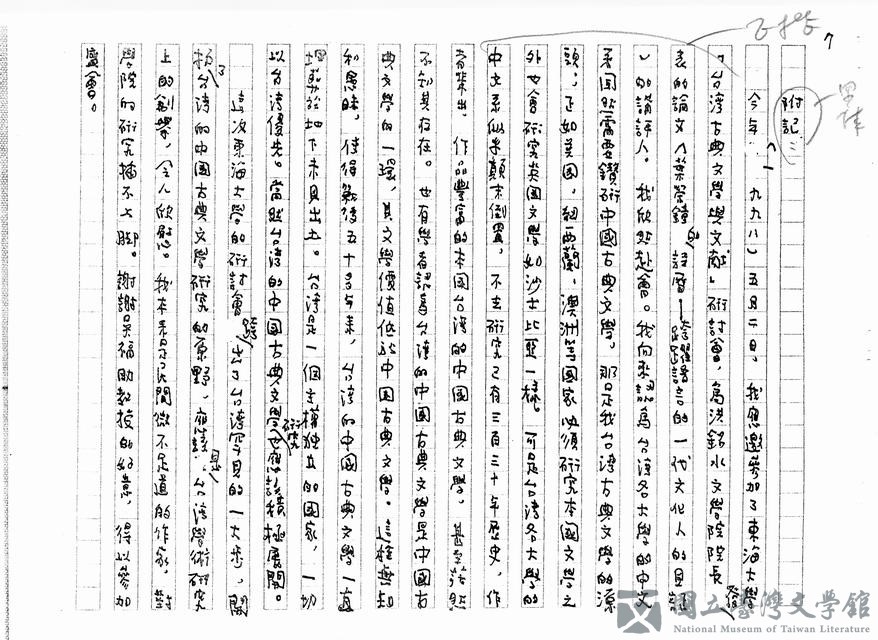 7
附記：
今年（一九九八）五月二日。我應邀參加了東海大學
「台湾古典文學與文献」研討會，為洪銘水文學院院長發
表的論文〈葉榮鐘的詩層──跨越語言的一代文化人的見証
〉的講評人。我欣然赴會。我向來認為台湾各大學的中文
系固然需要鑽研中国古典文學。那是我台湾古典文學的源
頭，正如美国，紐西蘭，澳洲等國家必須研究本國文學之
外也會研究英国文學如沙士比亞一樣。可是台湾各大學的
中文系似乎顛末倒置，不去研究已有三百三十年歷史，作
者輩出，作品豐富的本国台湾的中国古典文學。甚至茫然
不知其存在。也有學者認為台湾的中国古典文學是中国古
典文學的一環，其文學價值低於中国古典文學。這種無知
和愚昧，使得戰後五十多年來，台湾的中国古典文學一直
埋葬於地下未見出土。台湾是一個主權独立的国家，一切
以台湾優先。當然台湾的中国古典文學研究也應該積極展開。
這次東海大學的研討會跨出了台湾罕見的一大步，開
拓了台湾的中国古典文學研究的原野，應該是台湾學術研究
上的創舉，令人欣慰。我本來是民間微不足道的作家，對
學院的研究插不上脚。謝謝吴福助教授的好意，得以參加
盛會。
國立臺灣文學館
National Museum of Taiwan Literature